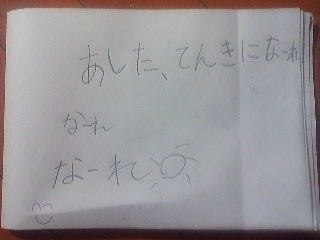 あした、てんきになーれ
なーれ
なーれ